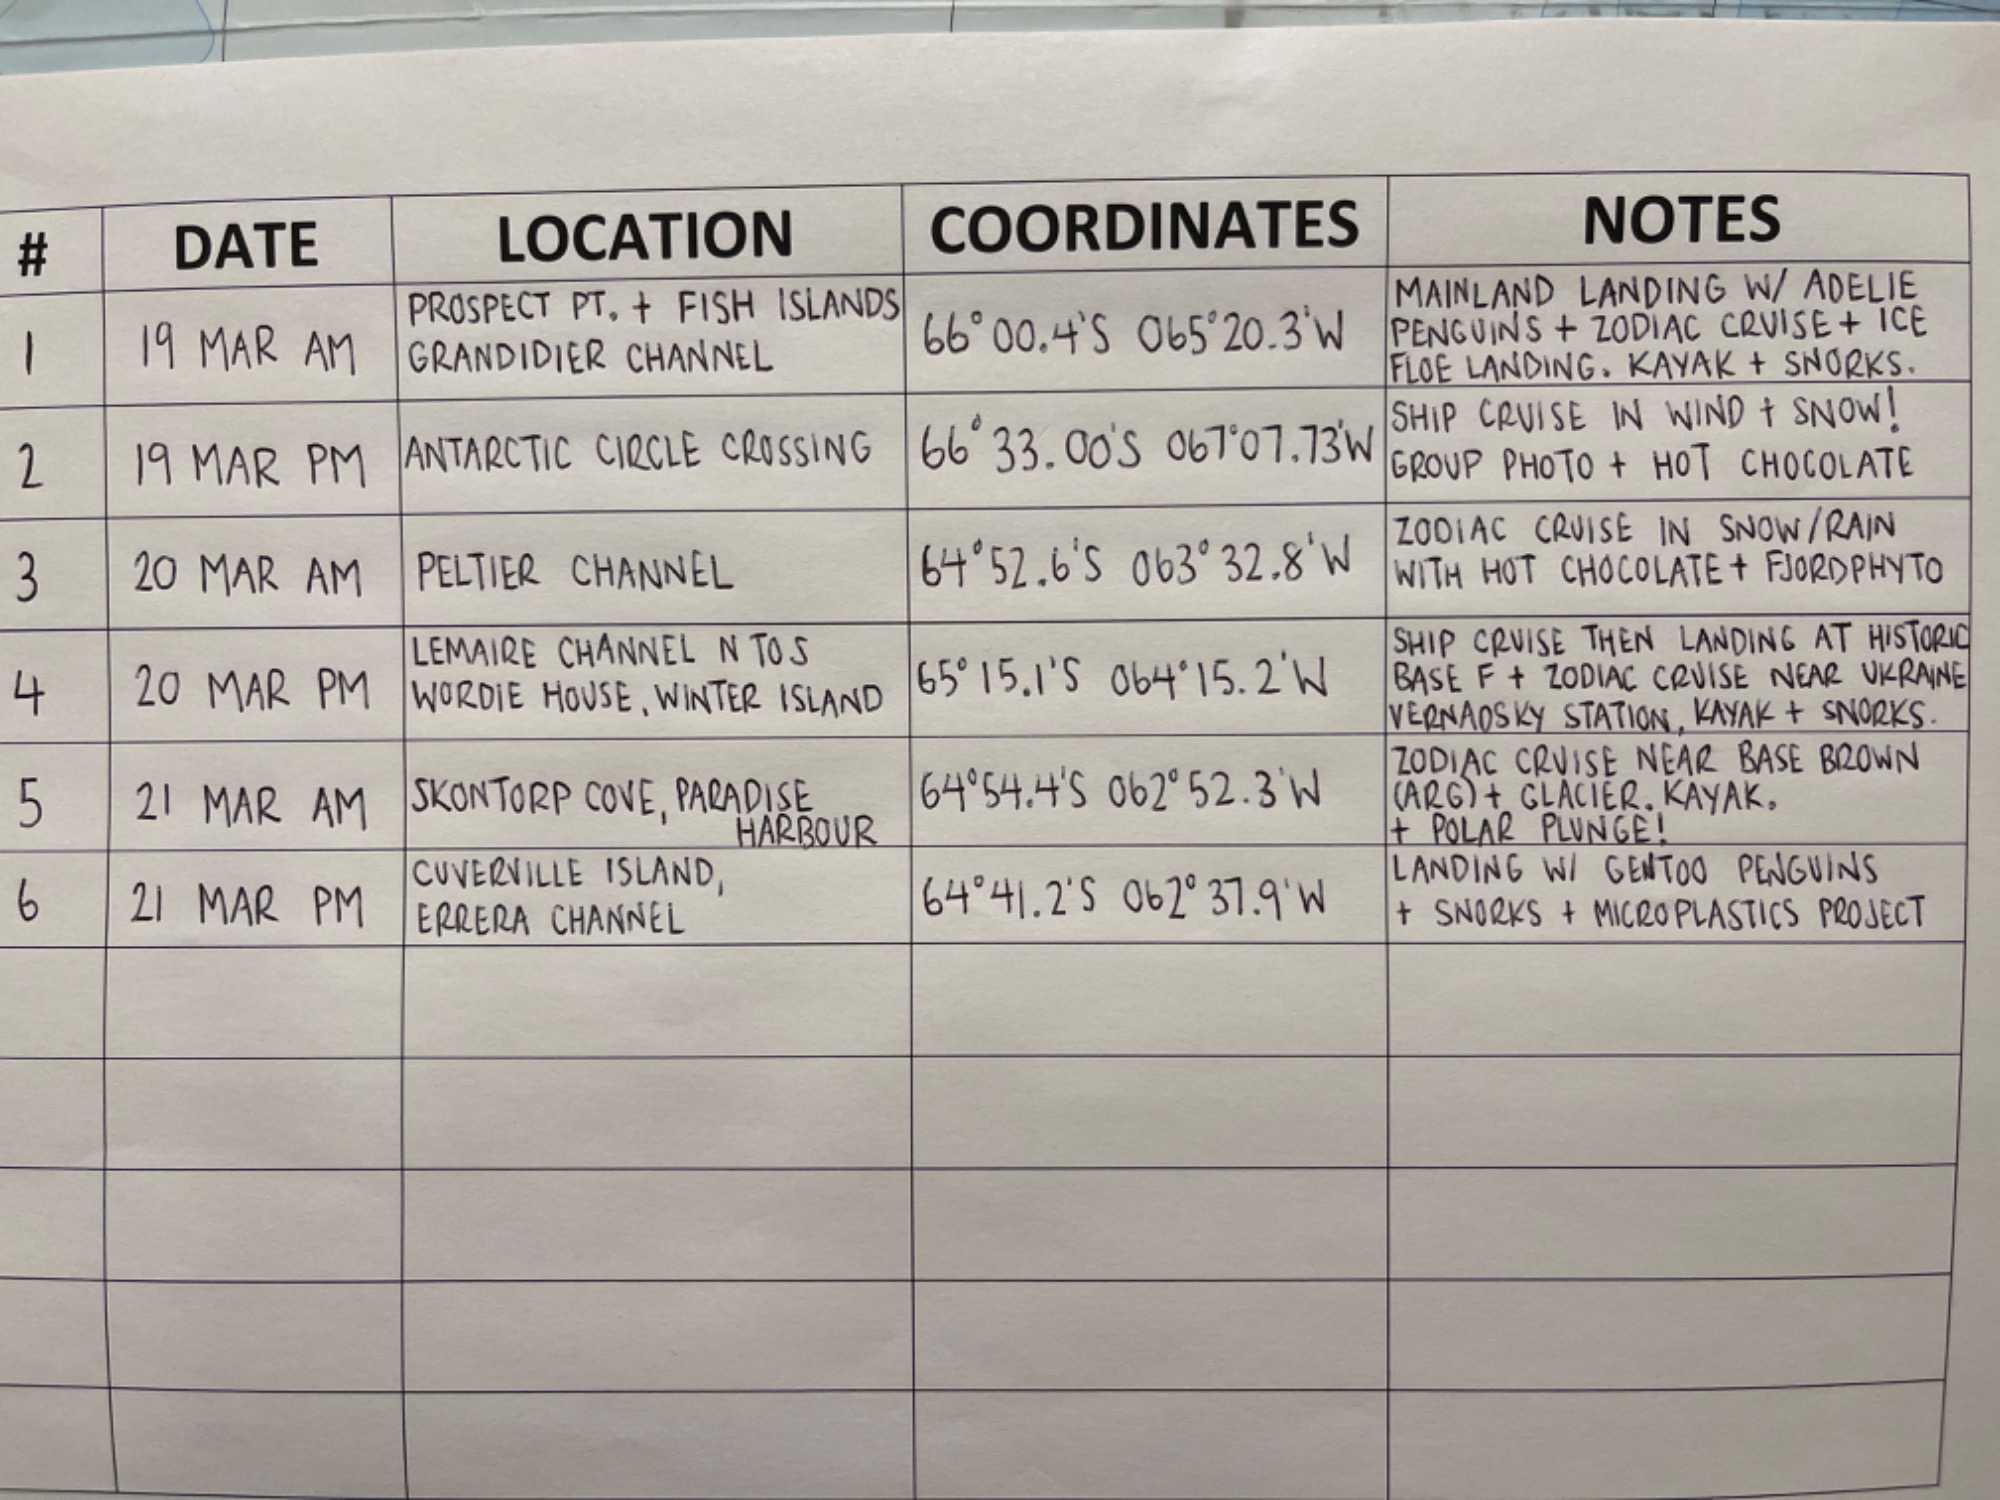 # DATE LOCATION COORDINATES NOTES
1 19 MAR AM PROSPECT PT. + FISH ISLANDS
GRANDIDIER CHANNEL 66°00.4'S 065°20.3'W MAINLAND LANDING W/ ADELIE
PENGUINS + ZODIAC CRUISE + ICE
FLOE LANDING. KAYAK + SNORKS.
2 19 MAR PM ANTARCTIC CIRCLE CROSSING 66°33.00'S 067°07.73'W SHIP CRUISE IN WIND + SNOW!
GROUP PHOTO + HOT CHOCOLATE
3 20 MAR AM PELTIER CHANNEL 64°52.6'S 063°32.8'W ZODIAC CRUISE IN SNOW/RAIN
WITH HOT CHOCOLATE + FJORDPHYTO
4 20 MAR PM LEMAIRE CHANNEL N TO S
WORDIE HOUSE, WINTER ISLAND 65°15.1'S 064°15.2'W SHIP CRUISE THEN LANDING AT HISTORIC
BASE F + ZODIAC CRUISE NEAR UKRAINE
VERNADSKY STATION, KAYAK + SNORKS.
5 21 MAR AM SKONTORP COVE, PARADISE
HARBOUR 64°54.4'S 062°52.3'W ZODIAC CRUISE NEAR BASE BROWN
(ARG) + GLACIER. KAYAK.
+ POLAR PLUNGE!
6 21 MAR PM CUVERVILLE ISLAND,
ERRERA CHANNEL 64°41.2'S 062°37.9'W LANDING W/ GENTOO PENGUINS
+ SNORKS + MICROPLASTICS PROJECT